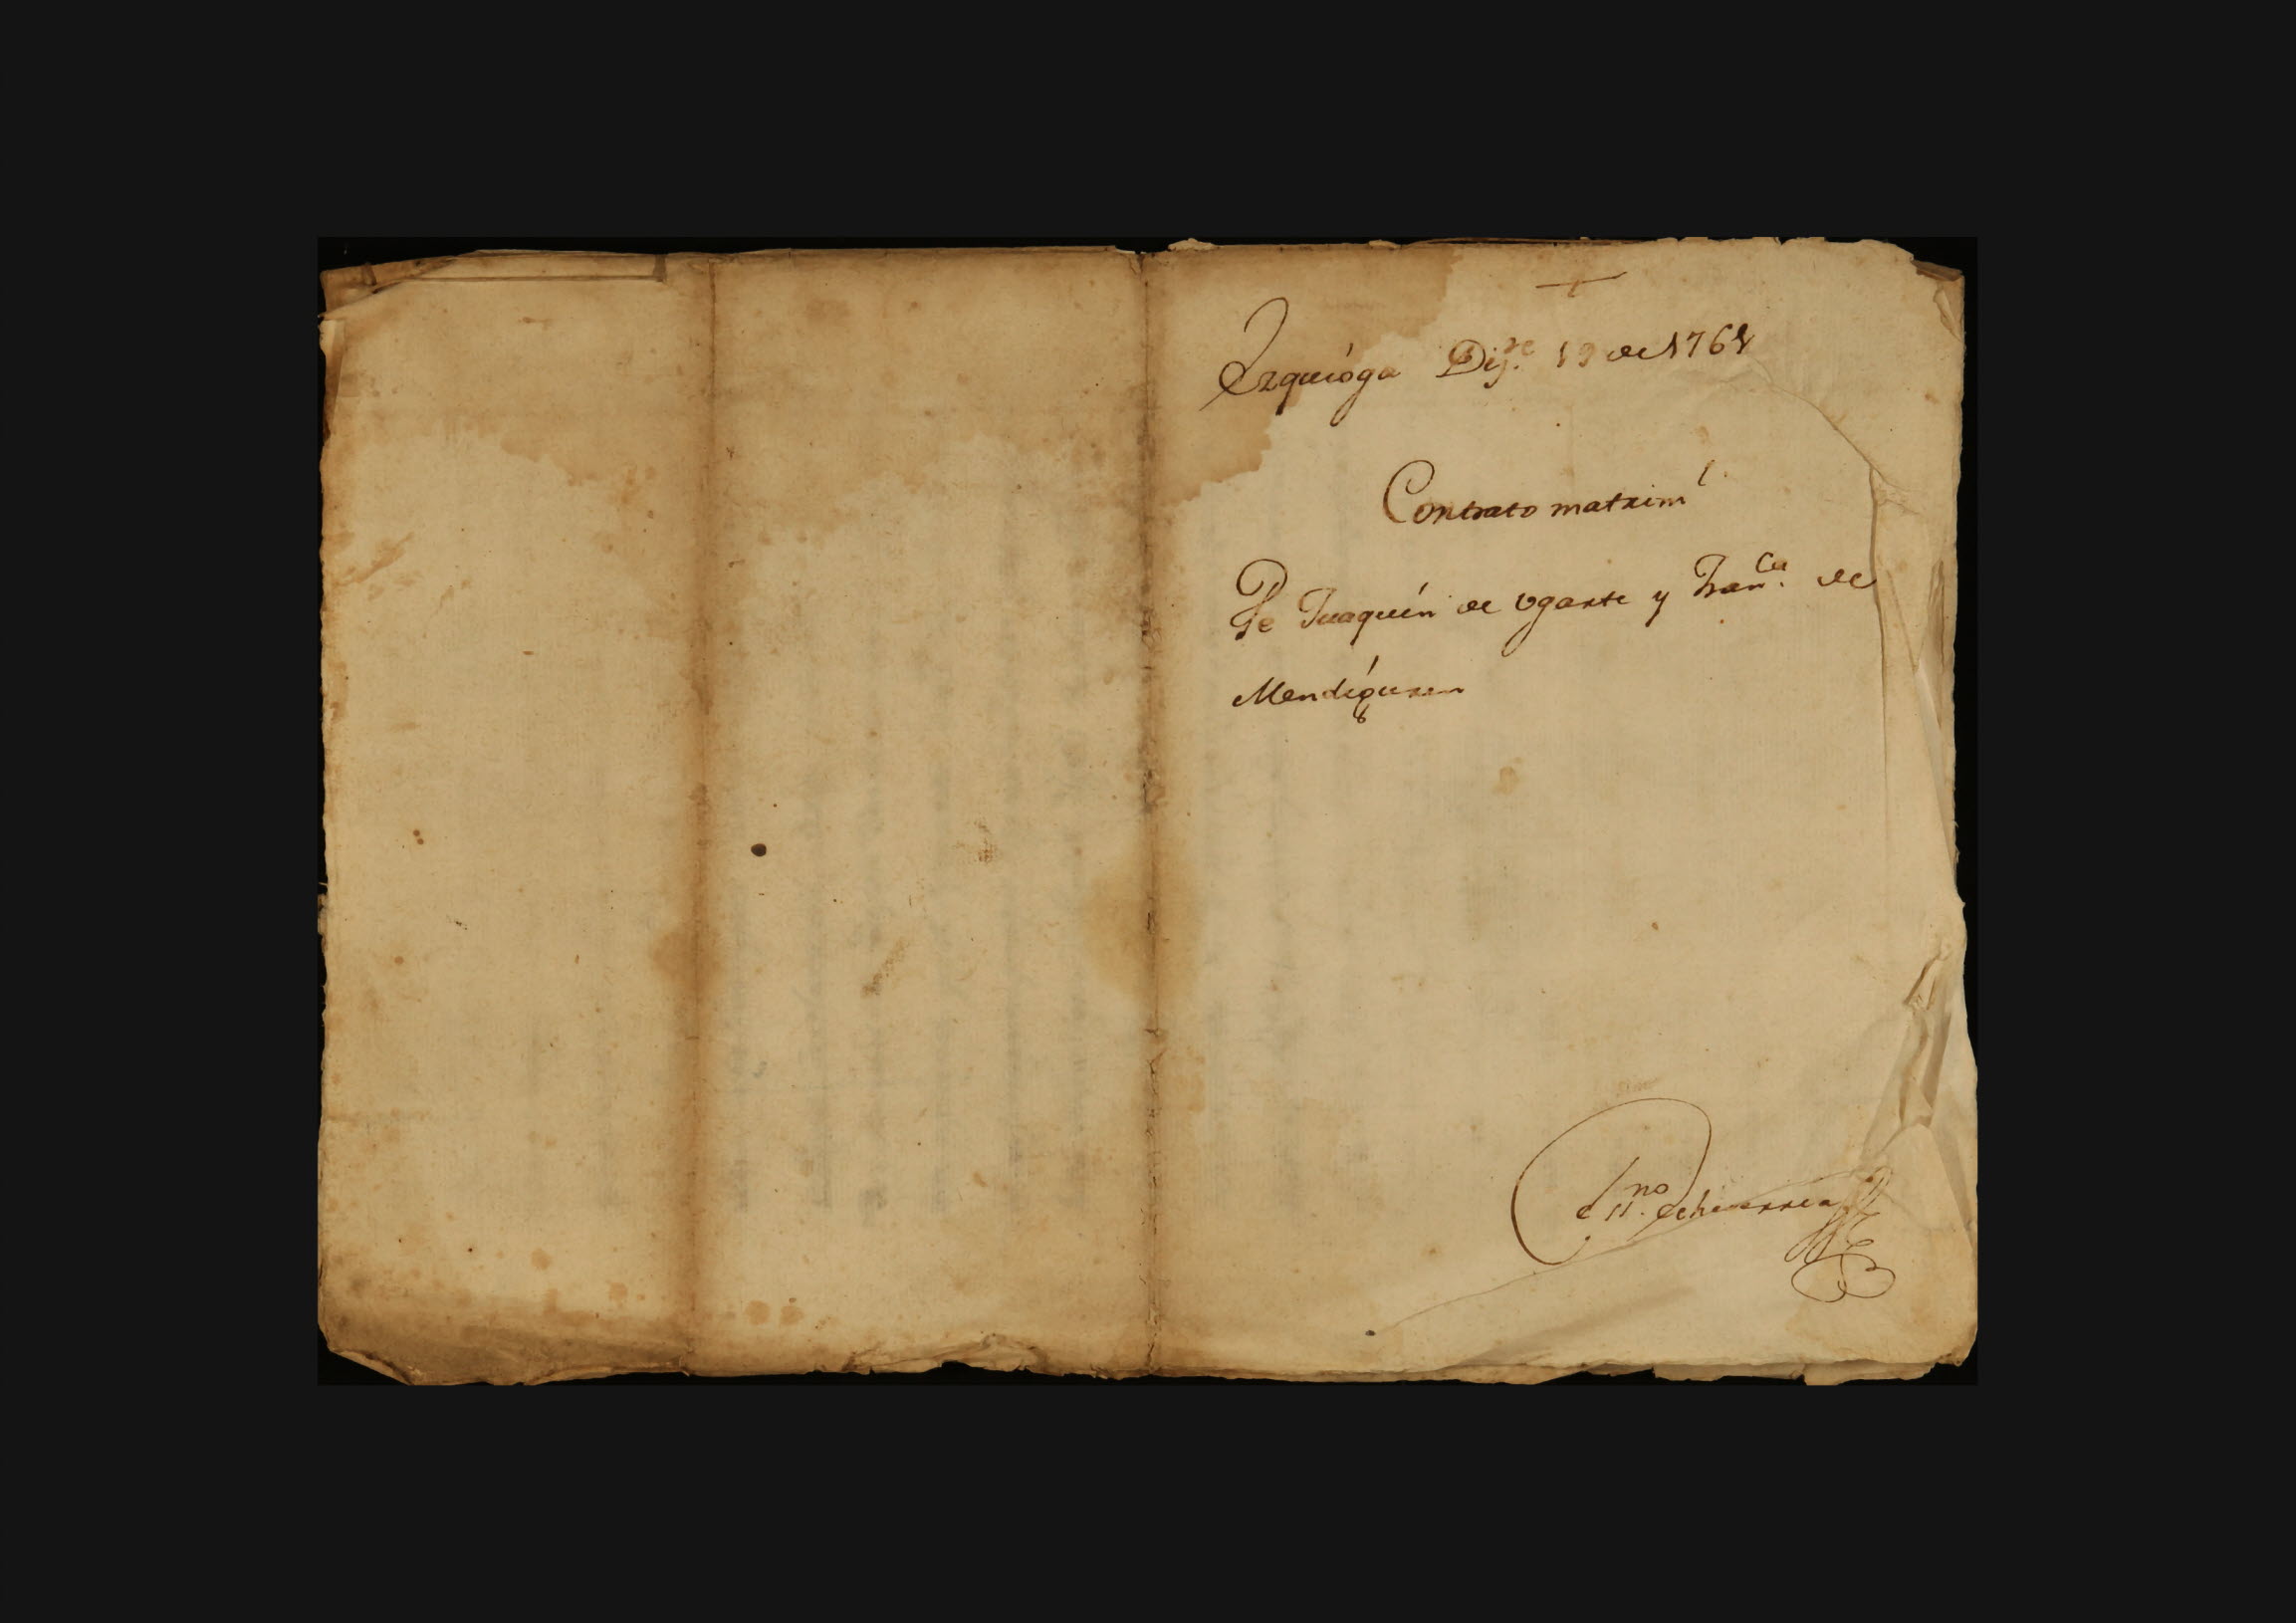 Ezquióga Diz.re 19 de 1761
Contrato matrim.l
De Juaquín de Ugarte y Fran.ca de
Mendiguren
Ess.no Echeverria